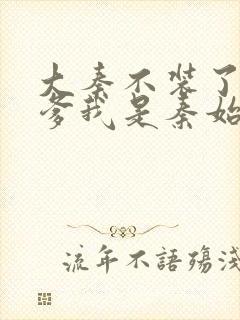 大秦不裝了
爹我是秦始
流年不語殤淺